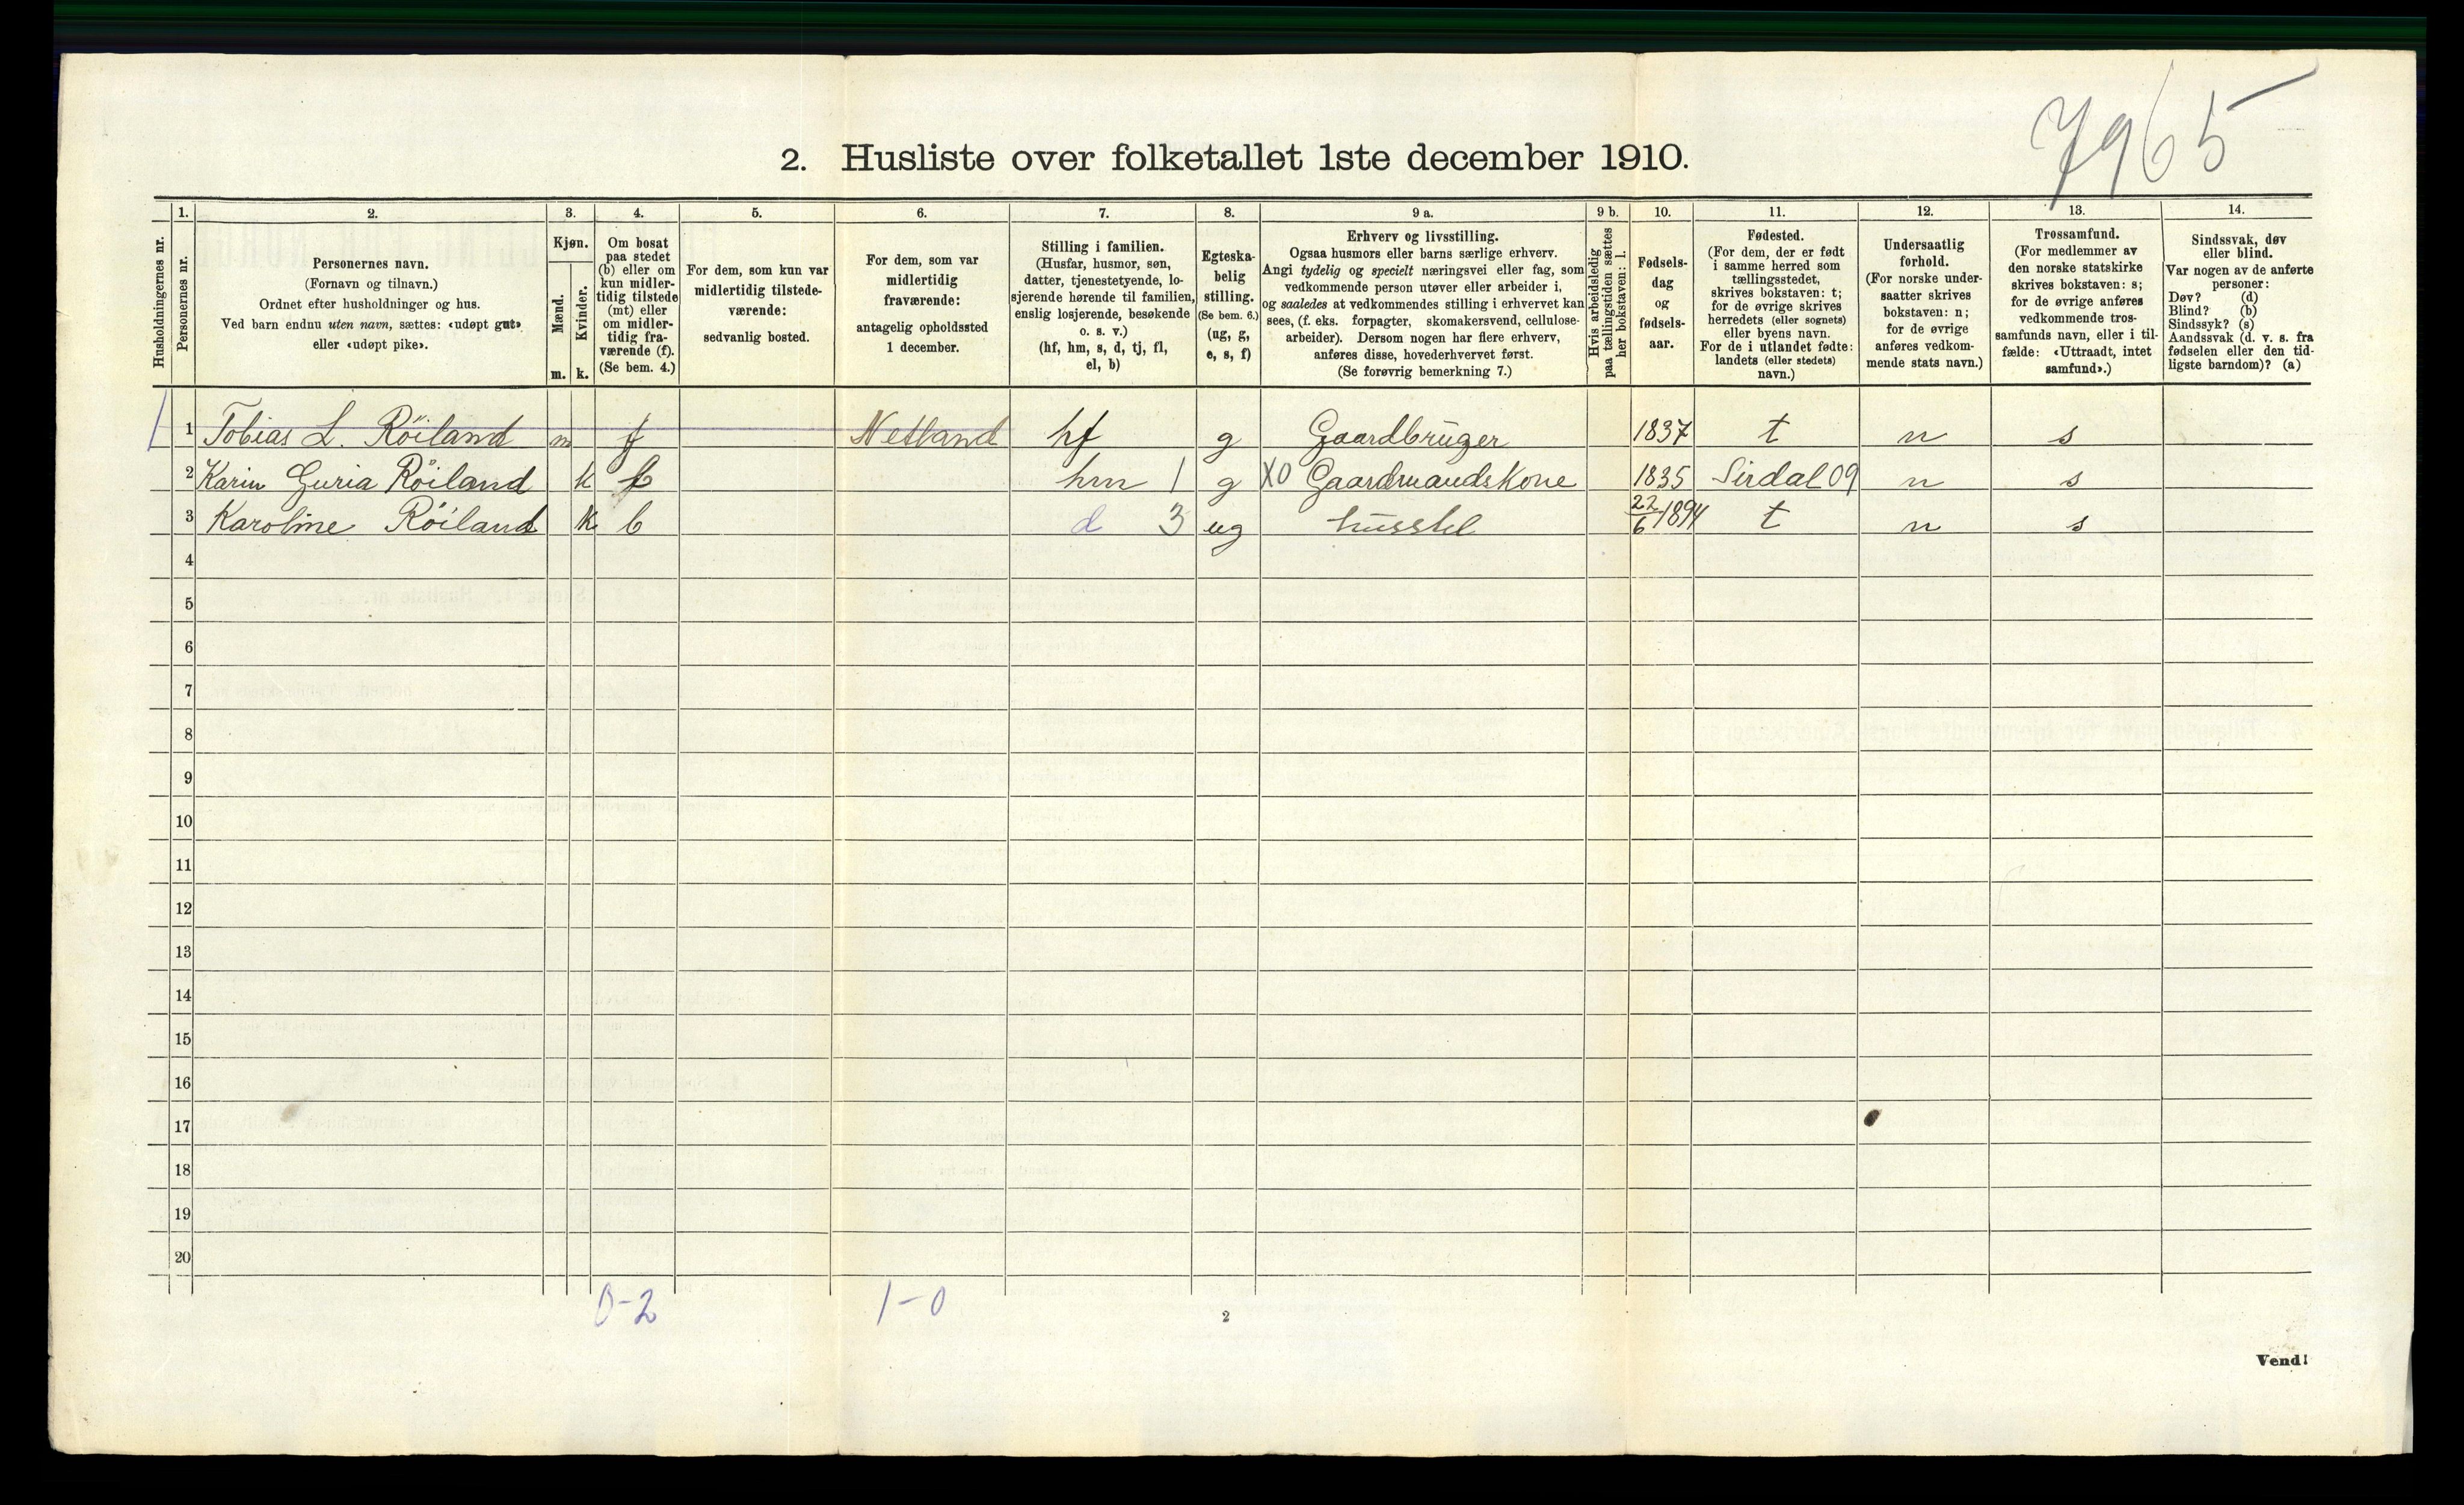 7965
2. Husliste over folketallet 1ste december 1910.
Husholdningernes nr.
1.
Personernes nr.
2.
Personernes navn.
(Fornavn og tilnavn.)
Ordnet efter husholdninger og hus.
Ved barn endnu uten navn, sættes: «udøpt gut»
eller «udøpt pike».
3.
Kjøn.
Mænd.
m.
Kvinder.
k.
4.
Om bosat
paa stedet
(b) eller om
kun midler-
tidig tilstede
(mt) eller
om midler-
tidig fra-
værende (f).
(Se bem. 4.)
5.
For dem, som kun var
midlertidig tilstede-
værende:
sedvanlig bosted.
6.
For dem, som var
midlertidig
fraværende:
antagelig opholdssted
1 december.
7.
Stilling i familien.
(Husfar, husmor, søn,
datter, tjenestetyende, lo-
sjerende hørende til familien,
enslig losjerende, besøkende
o. s. v.)
(hf, hm, s, d, tj, fl,
el, b)
8.
Egteska-
belig
stilling.
(Se bem. 6.)
(ug, g,
e, s, f)
9 a.
Erhverv og livsstilling.
Ogsaa husmors eller barns særlige erhverv.
Angi tydelig og specielt næringsvei eller fag, som
vedkommende person utøver eller arbeider i,
og saaledes at vedkommendes stilling i erhvervet kan
sees, (f. eks. forpagter, skomakersvend, cellulose-
arbeider). Dersom nogen har flere erhverv,
anføres disse, hovederhvervet først.
(Se forøvrig bemerkning 7.)
9 b.
Hvis arbeidsledig
paa tællingstiden sættes
her bokstaven: l.
10.
Fødsels-
dag
og
fødsels-
aar.
11.
Fødested.
(For dem, der er født
i samme herred som
tællingsstedet,
skrives bokstaven: t;
for de øvrige skrives
herredets (eller sognets)
eller byens navn.
For de i utlandet fødte:
landets (eller stedets)
navn.)
12.
Undersaatlig
forhold.
(For norske under-
saatter skrives
bokstaven: n;
for de øvrige
anføres vedkom-
mende stats navn.)
13.
Trossamfund.
(For medlemmer av
den norske statskirke
skrives bokstaven: s;
for de øvrige anføres
vedkommende tros-
samfunds navn, eller i til-
fælde: «Uttraadt, intet
samfund».)
14.
Sindssvak, døv
eller blind.
Var nogen av de anførte
personer:
Døv? (d)
Blind? (b)
Sindssyk? (s)
Aandssvak (d. v. s. fra
fødselen eller den tid-
ligste barndom)? (a)
1 1 Tobias L. Röiland m f Netland hf g Gaardbruger 1837 t n s
2 Karin Guria Röiland k b hm 1 g XO Gaardmandskone 1835 Sirdal 09 n s
3 Karoline Röiland k b d 3 ug husstel 22/6 1894 t n s
4
5
6
7
8
9
10
11
12
13
14
15
16
17
18
19
20
0-2 1-0
2
Vend!